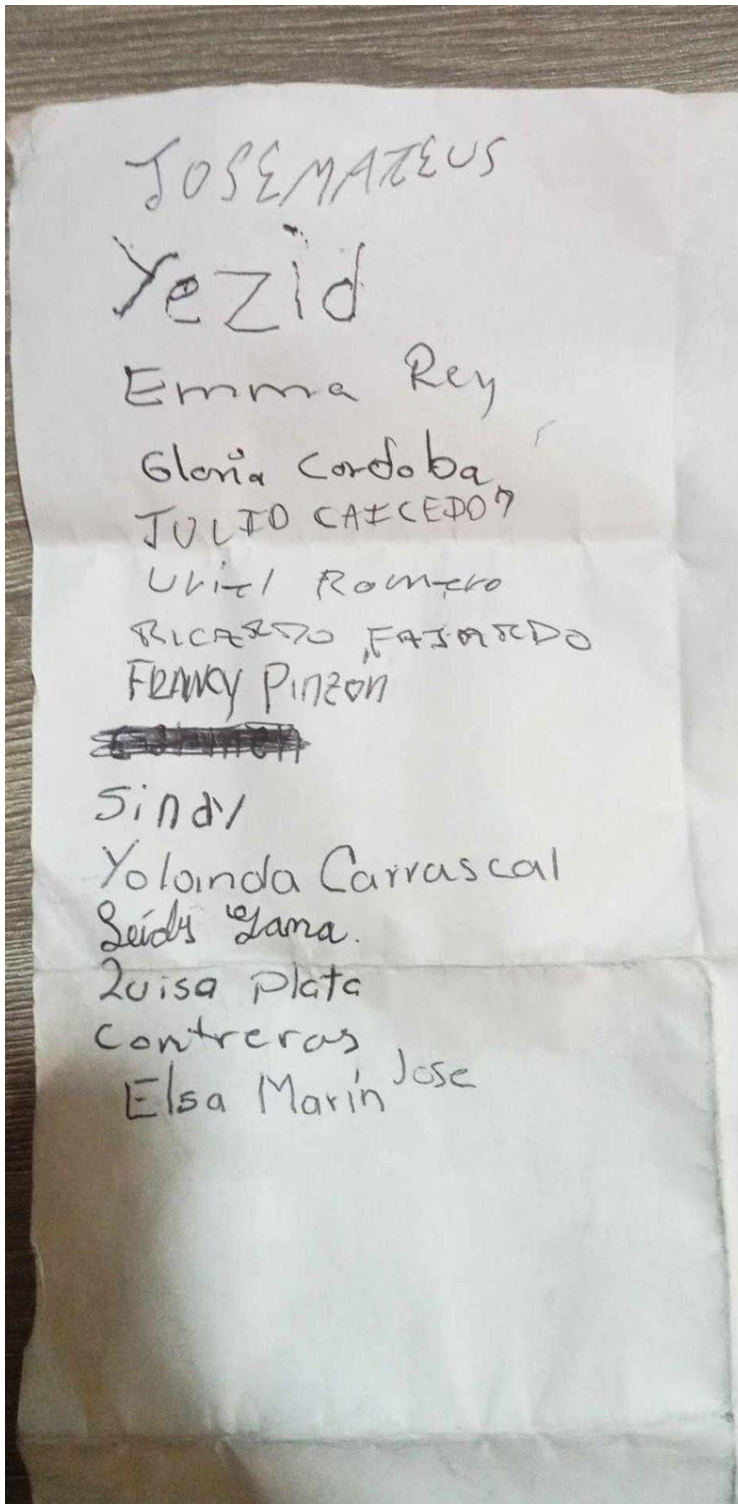 JOSE MATEUS
Yezid
Emma Rey
Gloria Cordoba
JULIO CAICEDO
Uriel Romero
RICARDO FAJARDO
FRANCY Pinzón
Sindy
Yolanda Carrascal
Leidy Lama.
Luisa Plata
Contreras Jose
Elsa Marín